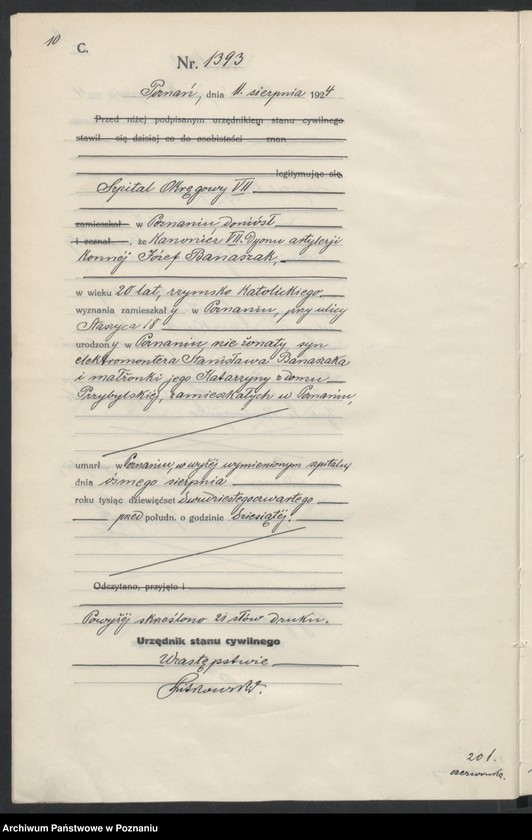 10
C.
Nr. 1393
Poznań, dnia 11. sierpnia 1924
Przed niżej podpisanym urzędnikiem stanu cywilnego
stawił się dzisiaj co do osobistości znan
legitymując się,
Szpital Okręgowy VII
zamieszkał w Poznaniu doniósł
i zeznał, że Kanonier VII. Dyonu artylerji
Konnej Józef Banaszak,
w wieku 20 lat, rzymsko Katolickiego
wyznania zamieszkały w Poznaniu, przy ulicy
Staszyca 18
urodzony w Poznaniu, nie żonaty, syn
elektromontera Stanisława Banaszaka
i małżonki jego Katarzyny z domu
Przybylskiej, zamieszkałych w Poznaniu,
umarł w Poznaniu, w wyżej wymienionym szpitalu
dnia ósmego sierpnia
roku tysiąc dziewięćset dwudziestegoczwartego
przed połudn. o godzinie dziesiątej.
Odczytano, przyjęto i
Powyżej skreślono 21 słów druku.
Urzędnik stanu cywilnego
W zastępstwie
201.
czerwonka.
Archiwum Państwowe w Poznaniu